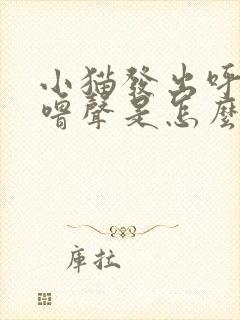 小猫發出呼
嚕聲是怎麼
庫拉